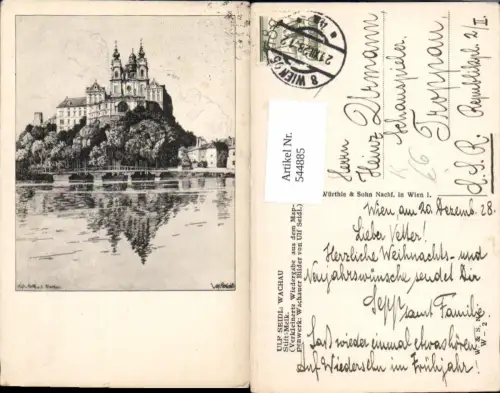 Artikel Nr.
544885
8 WIEN
21.XII.28
Herrn
Heinz Urmann,
Schauspieler,
Troppau,
Č.S.R. Republikpl. 2/II
Würthle & Sohn Nachf. in Wien I.
ULF SEIDL: WACHAU
Stift Melk.
(Verkleinerte Wiedergabe aus dem Map-
penwerk: Wachauer Bilder von Ulf Seidl.)
W. & S. N.
W 2
Wien am 20. Dezemb. 28.
Lieber Vetter!
Herzliche Weihnachts- und
Neujahrswünsche sendet Dir
Sepp samt Familie.
Laß wieder einmal etwas hören,
Auf Wiedersehn im Frühjahr!